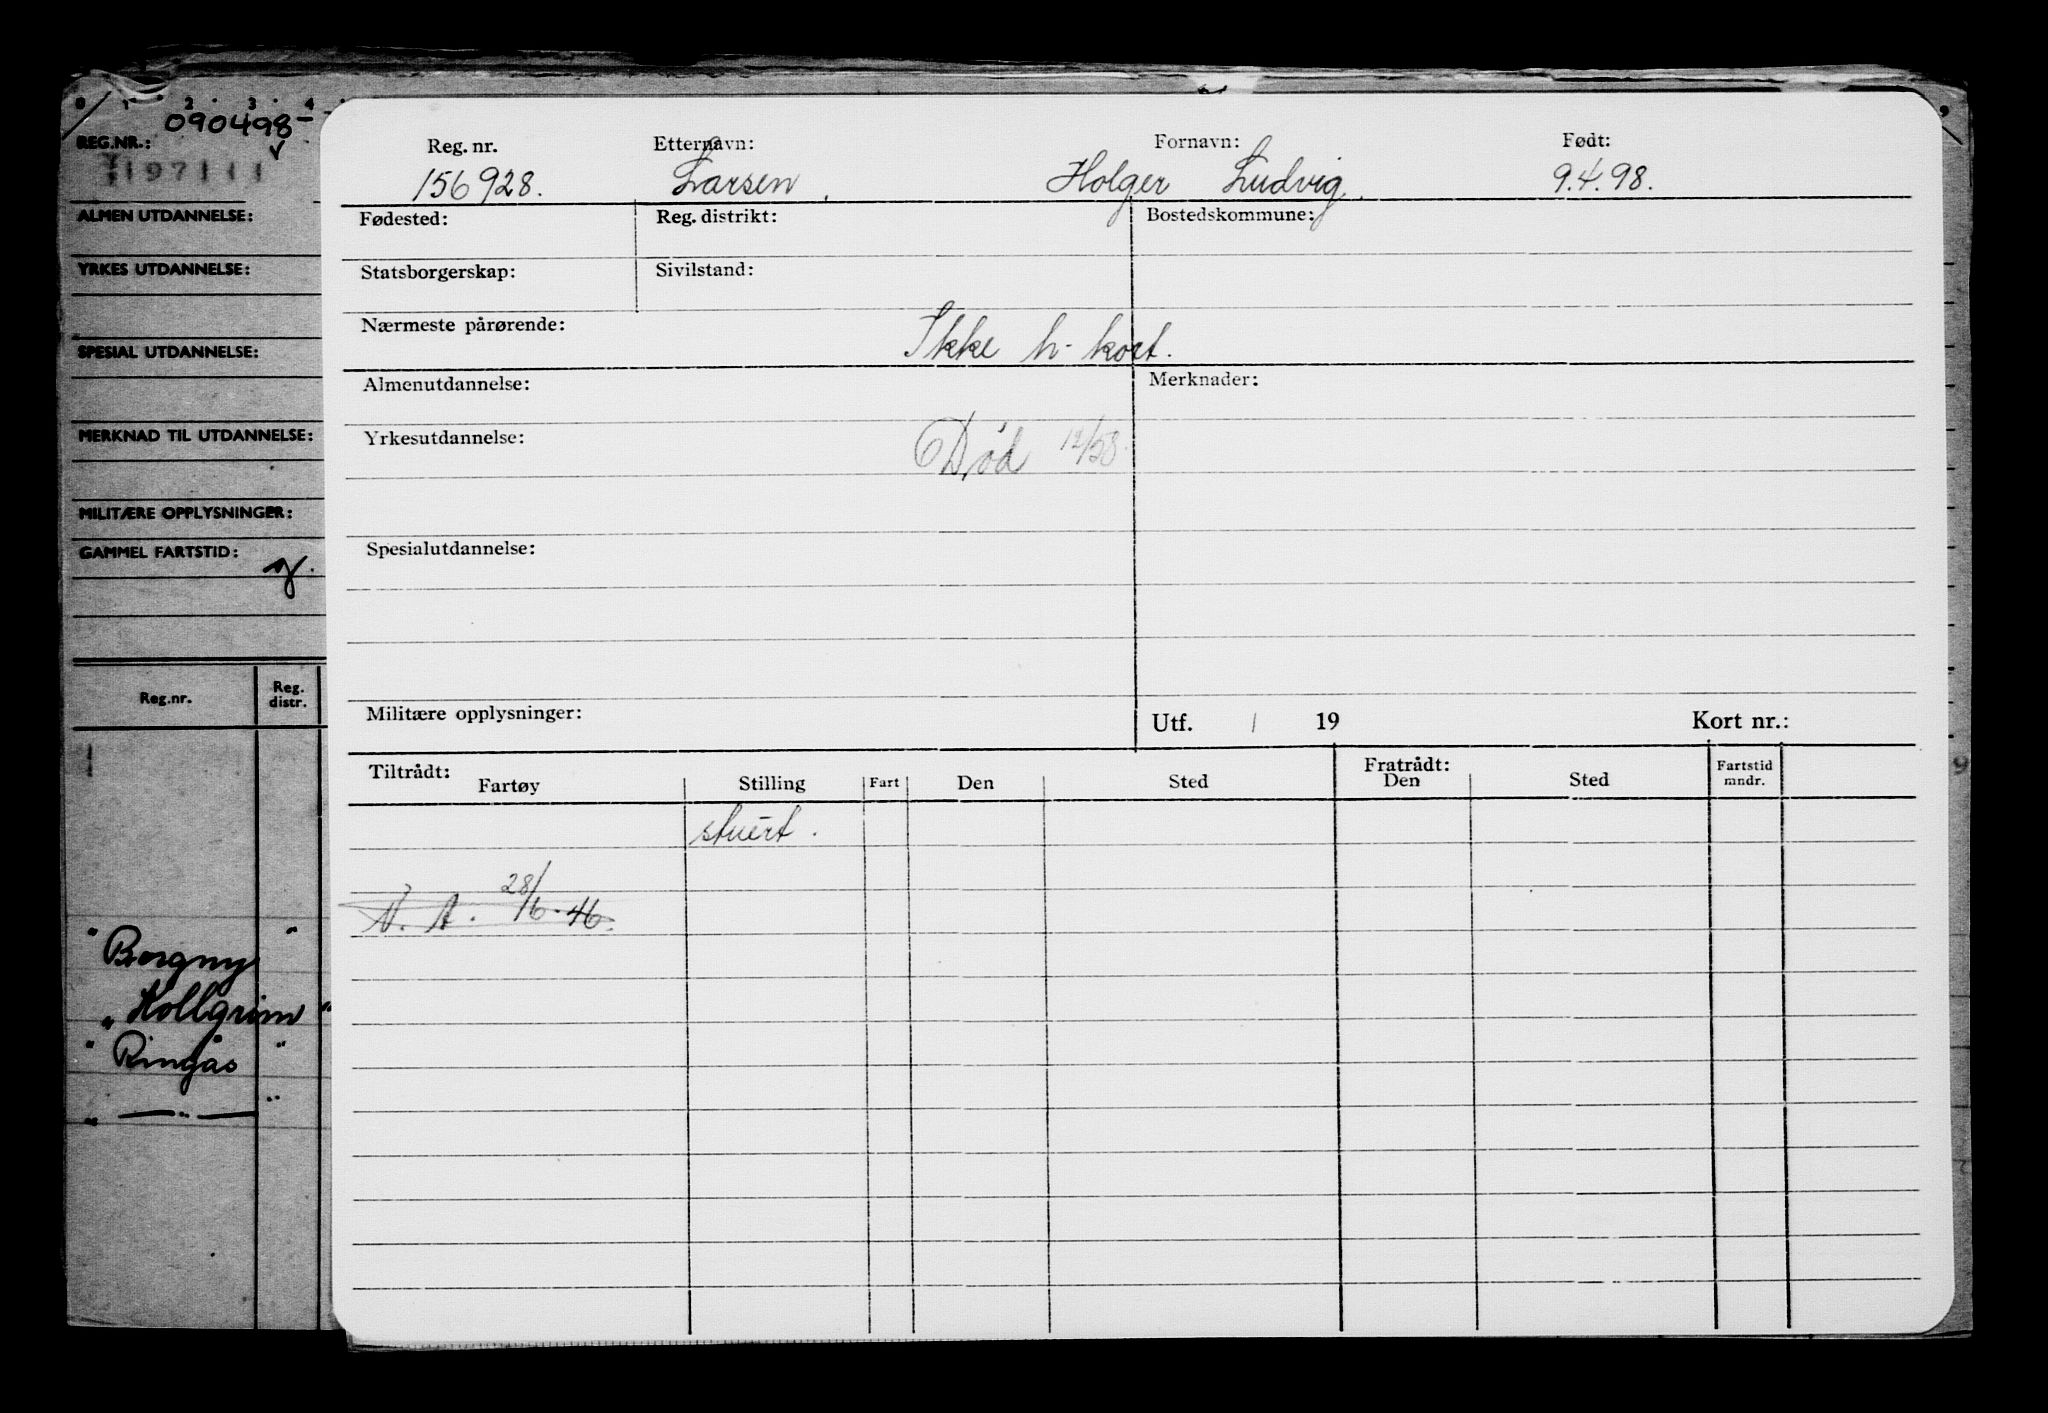 0 1 2 3 4 9
090498-
REG.NR.:
197111
ALMEN UTDANNELSE:
YRKES UTDANNELSE:
SPESIAL UTDANNELSE:
MERKNAD TIL UTDANNELSE:
MILITÆRE OPPLYSNINGER:
GAMMEL FARTSTID:
Reg.nr. Reg. distr.
"Borgny"
"Kollgrim"
"Ringås"
" — " — "
Reg. nr. Etternavn: Fornavn: Født:
156928. Larsen, Holger Ludvig. 9.4.98.
Fødested: Reg. distrikt: Bostedskommune:
Statsborgerskap: Sivilstand:
Nærmeste pårørende: Ikke h-kort.
Almenutdannelse: Merknader:
Yrkesutdannelse: Død 12/58.
Spesialutdannelse:
Militære opplysninger: Utf. / 19 Kort nr.:
Tiltrådt: Fratrådt: Fartstid
Fartøy Stilling Fart Den Sted Den Sted mndr.
stuert.
N. A. 28/6-46.